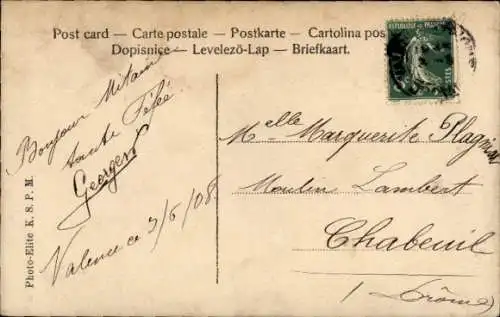 Post card — Carte postale — Postkarte — Cartolina pos
Dopisnice — Levelező-Lap — Briefkaart.
REPUBLIQUE FRANÇAISE
Bonjour
tante Fifée
Georges
Valence ce 5/6/08
Photo-Elite K. S. P. M.
Melle Marguerite
Moulin Lambert
Chabeuil
(Drôme)